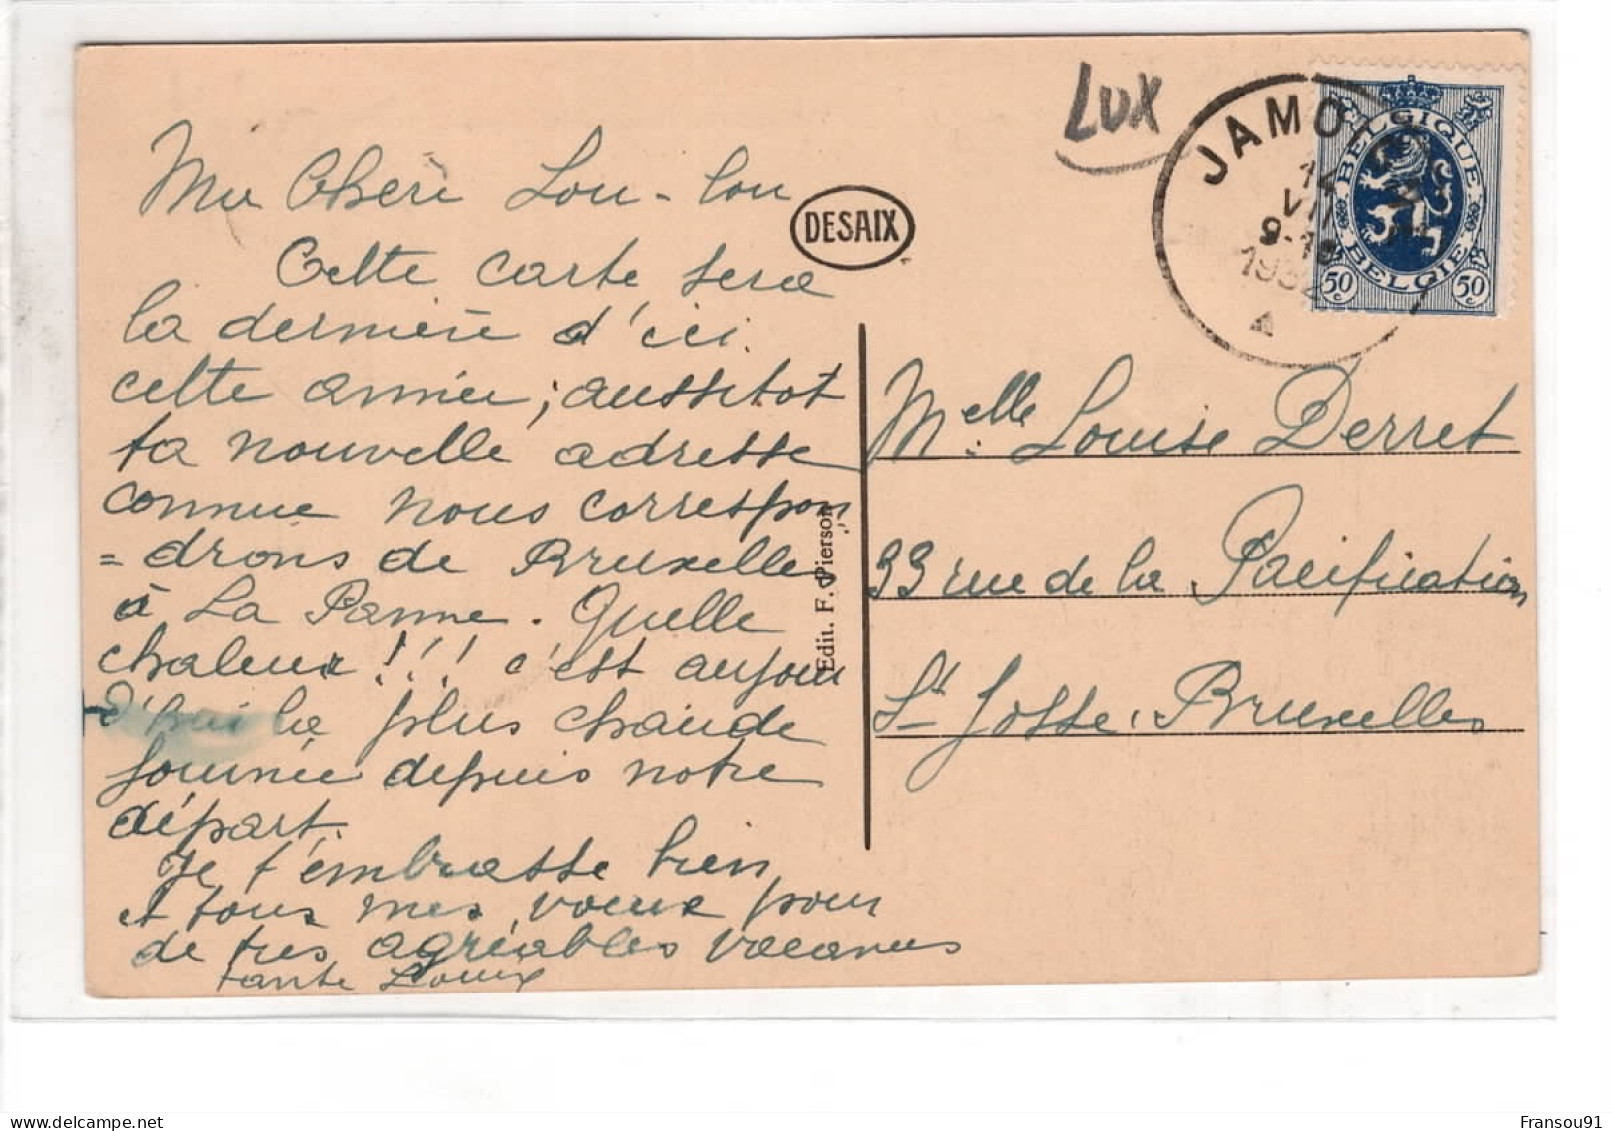 Ma Chérie Lou-lou
Cette carte sera
la dernière d'ici
cette année ; aussitot
ta nouvelle adresse
connue nous correspon
=drons de Bruxelles
à La Panne. Quelle
chaleur !!! c'est aujour
d'hui la plus chaude
journée depuis notre
départ.
Je t'embrasse bien
et tous mes voeux pour
de très agréables vacances
tante Louise
DESAIX
Edit. F. Pierson
LUX
JAMO
12
VII
9-10
193
BELGIQUE
BELGIE
50 c
50 c
Melle Louise Derret
33 rue de la Pacification
St Josse, Bruxelles
delcampe.net
Fransou91